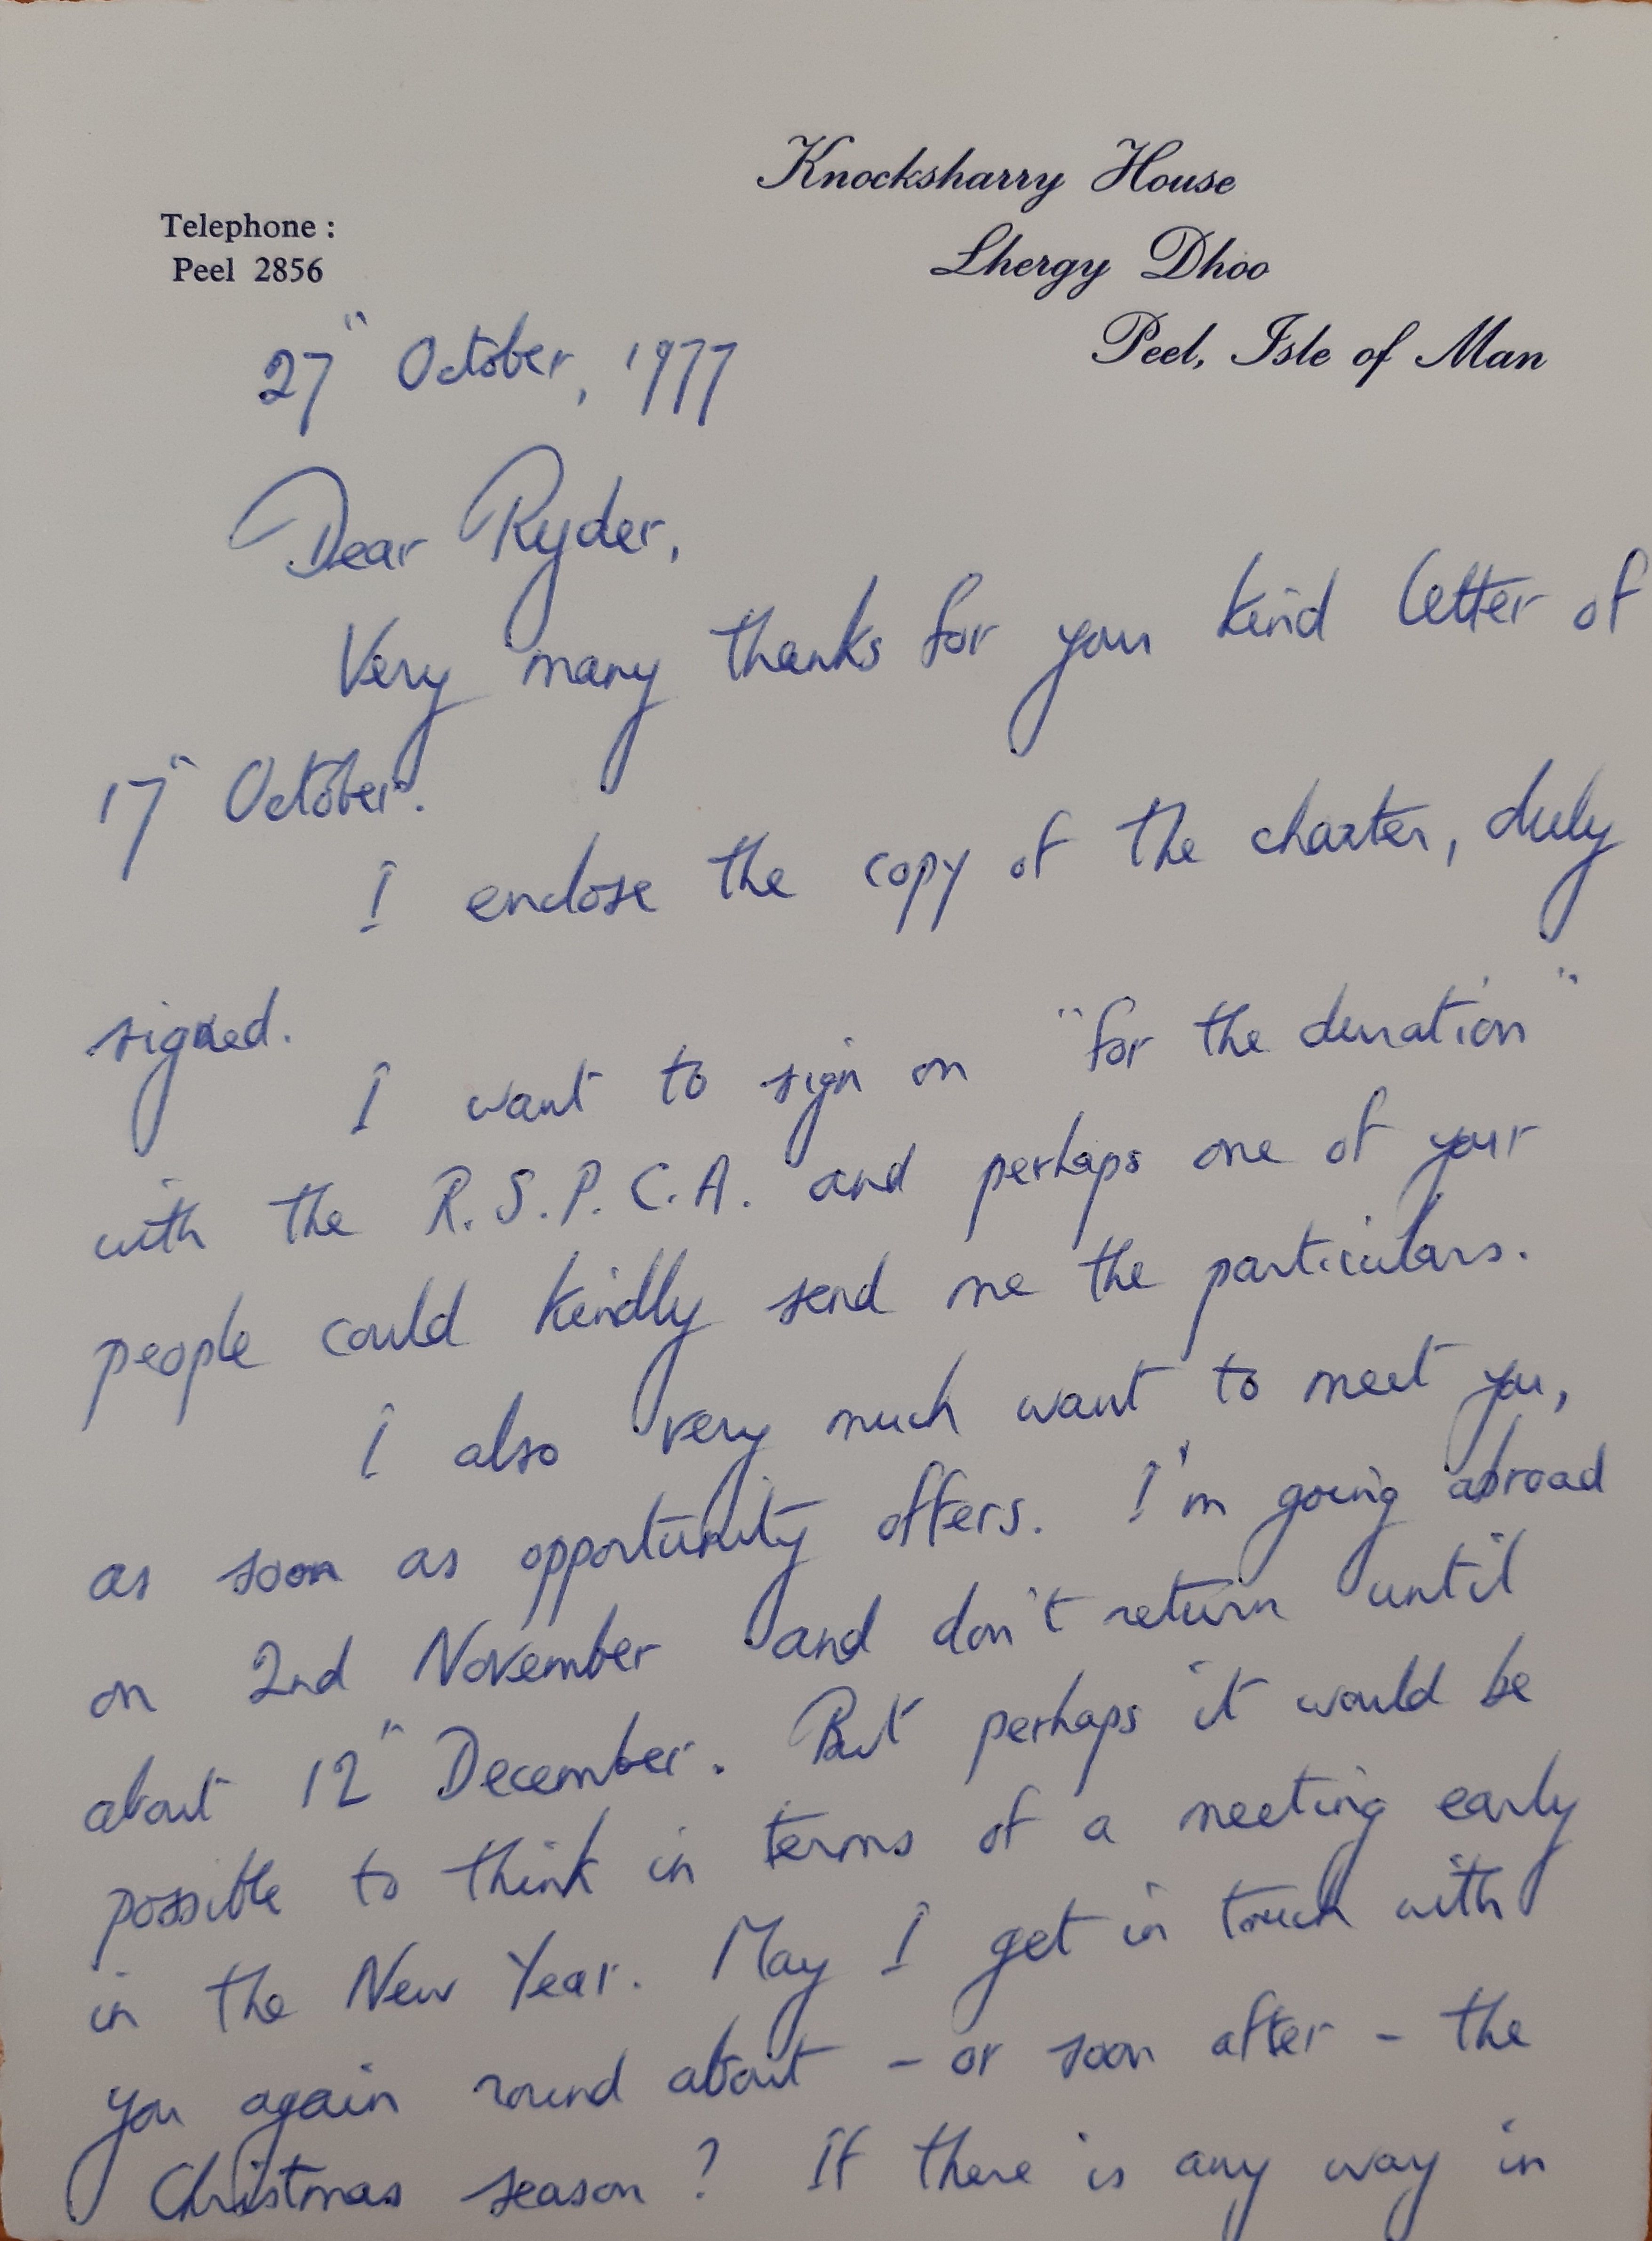 Knocksharry House
Telephone :
Lhergy Dhoo
Peel 2856
Peel, Isle of Man
27" October, 1977
Dear Ryder,
Very many thanks for your kind letter of
17" October.
I enclose the copy of the charter, duly
signed.
I want to sign on "for the duration"
with the R.S.P.C.A. and perhaps one of your
people could kindly send me the particulars.
I also very much want to meet you,
as soon as opportunity offers. I'm going abroad
on 2nd November and don't return until
about 12" December. But perhaps it would be
possible to think in terms of a meeting early
in the New Year. May I get in touch with
you again round about - or soon after - the
Christmas season? If there is any way in